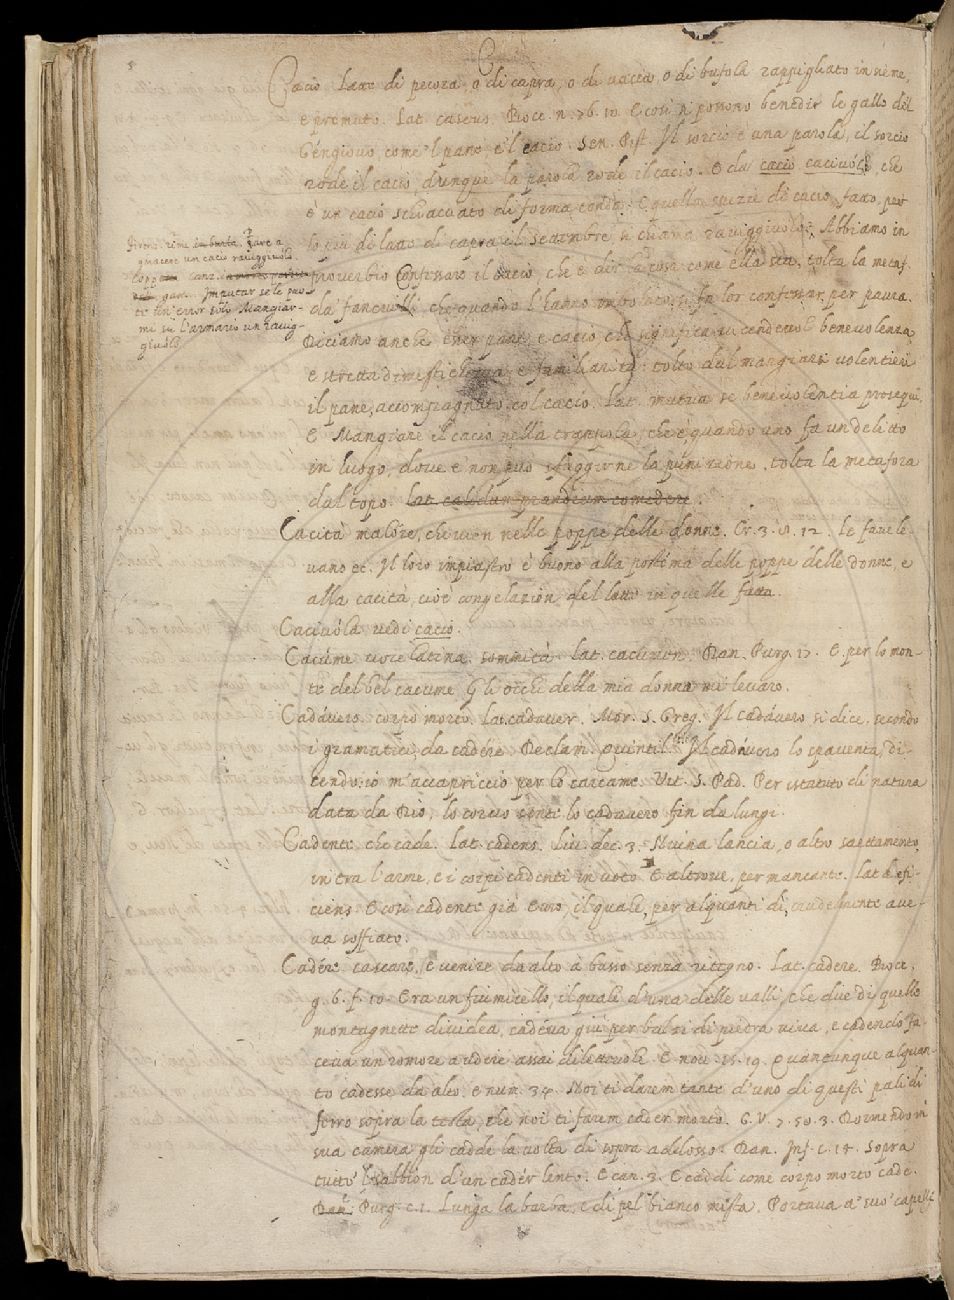 C
Cacio Latte di pecora, o di capra, o di vacca, o di bufola rappigliato insieme,
e premuto. Lat. caseus. Bocc. n. 76. 10. E così si possono benedir le galle del
Gengiovo, come 'l pane, e 'l cacio. Sen. Pist. Il sorcio è una parola, il sorcio
rode il cacio, dunque la parola rode il cacio. E da cacio caciuóla, che
è un cacio schiacciato di forma tonda. E quella spezie di cacio, fatto, per
lo più di latte di capra il Settembre si chiama raviggiuolo. Abbiamo in
proverbio Confessare il cacio, che è dir la cosa come ella sta, tolta la metaf.
da' fanciulli, che quando l'hanno imbolato, si fa lor confessar per paura.
Diciamo anche esser pane, e cacio che significa intendersi benevolenza
e stretta dimestichezza, e familiarità: tolto dal mangiarsi volentieri
il pane, accompagnato col cacio. Lat. mutua se benevolentia prosequi.
E Mangiare il cacio nella trappola, che è quando uno fa un delitto
in luogo, dove e' non può sfuggirne la punizione, tolta la metafora
dal topo. Lat. calidum prandium comedere.
Firenz. rime in burla. Fare a
guascere un cacio raviggiuolo.
canz.
gatt. Imputar se le puo-
te un error solo Mangiar-
mi su l'armario un ravig-
giuolo
Cacità malore, che vien nelle poppe delle donne. Cr. 3. 8. 12. Le fave le-
vano ec. Il loro impiastro è buono alla postema delle poppe delle donne, e
alla cacità, cioè congelazion del latte in quelle fatta.
Caciuóla vedi cacio.
Cacúme voce latina. sommità. Lat. cacumen. Dan. Purg. 17. E per lo mon-
te del bel cacume Gli occhi della mia donna mi levaro.
Cadávero. corpo morto. Lat. cadaver. Mor. S. Greg. Il cadávero si dice, secondo
i gramatici, da cadére Declam. Quintil. Il cadávero lo spaventa, di-
cendo: io m'accapriccio per lo carcame. Vit. S. Pad. Per istatuto di natura
data da Dio, lo corvo sente lo cadavero fin da lungi.
Cadente che cade. Lat. cadens. Liv. dec. 3. Niuna lancia, o altro saettamento,
intra l'arme, e i corpi cadenti in voto E altrove. per mancante. Lat. defi-
ciens E così cadente già Euro, il quale, per alquanti dì, crudelmente ave-
va soffiato.
Cadére cascare, e venire da alto a basso senza ritegno. Lat. cadere. Bocc.
g. 6. f. 10. Era un fiumicello, il quale d'una delle valli, che due di quelle
montagnette dividea, cadéva giù per balzi di pietra viva, e cadendo fa-
ceva un romore a udire assai dilettevole. E nov. 15. 19. Quantunque alquan-
to cadesse da alto. e num. 34. Noi ti darem tante d'uno di questi pali di
ferro sopra la testa, che noi ti farem cader morto. G. V. 7. 50. 3. Dormendo in
sua camera gli cadde la volta di sopra addosso. Dan. Inf. c. 14. Sopra
tutto 'l sabbion d'un cadér lento. E can. 3. E caddi come corpo morto cade.
Dan. Purg. c. 1. Lunga la barba, e di pel bianco mista. Portava a' suo' capelli